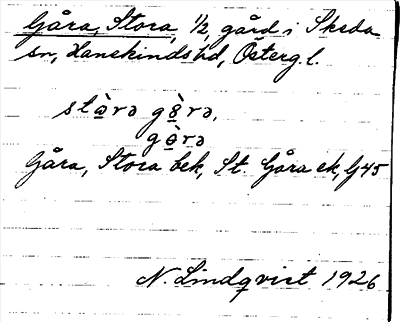 Gåra, Stora, 1/2, gård i Skeda
sn, Hanekinds hd, Österg.l.
stàra gòrə,
gòrə
Gåra, Stora bek, St. Gåra ek, Gj45
N. Lindqvist 1926